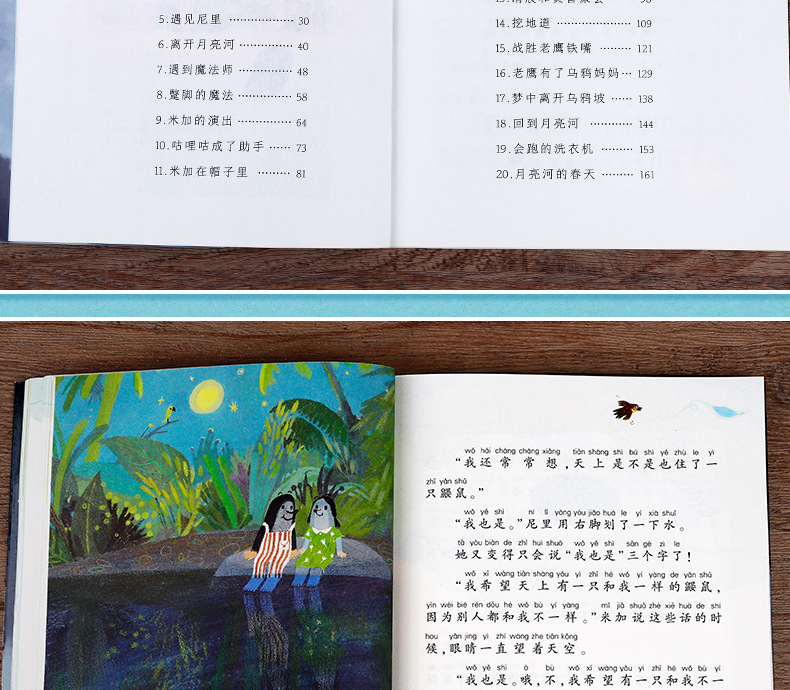 5.遇见尼里 ················ 30
6.离开月亮河 ·············· 40
7.遇到魔法师 ·············· 48
8.蹩脚的魔法 ·············· 58
9.米加的演出 ·············· 64
10.咕哩咕成了助手 ······ 73
11.米加在帽子里 ········· 81
14.挖地道 ················ 109
15.战胜老鹰铁嘴 ········· 121
16.老鹰有了乌鸦妈妈··· 129
17.梦中离开乌鸦坡 ······ 138
18.回到月亮河 ············ 144
19.会跑的洗衣机 ········· 153
20.月亮河的春天 ········· 161
wǒ hái cháng cháng xiǎng tiān shàng shì bú shì yě zhù le yì
“我还常常想,天上是不是也住了一
zhī yǎn shǔ
只鼹鼠。”
wǒ yě shì ní lǐ yòng yòu jiǎo huá le yí xià shuǐ
“我也是。”尼里用右脚划了一下水。
tā yòu biàn de zhǐ huì shuō wǒ yě shì sān gè zì le
她又变得只会说“我也是”三个字了!
wǒ xī wàng tiān shàng yǒu yì zhī hé wǒ yí yàng de yǎn shǔ
“我希望天上有一只和我一样的鼹鼠,
yīn wèi bié rén dōu hé wǒ bù yí yàng mǐ jiā shuō zhè xiē huà de shí
因为别人都和我不一样。”米加说这些话的时
hou yǎn jing yì zhí wàng zhe tiān kōng
候,眼睛一直望着天空。
wǒ yě shì ò bù wǒ xī wàng yǒu yì zhī hé wǒ bù yí
“我也是。哦,不,我希望有一只和我不一